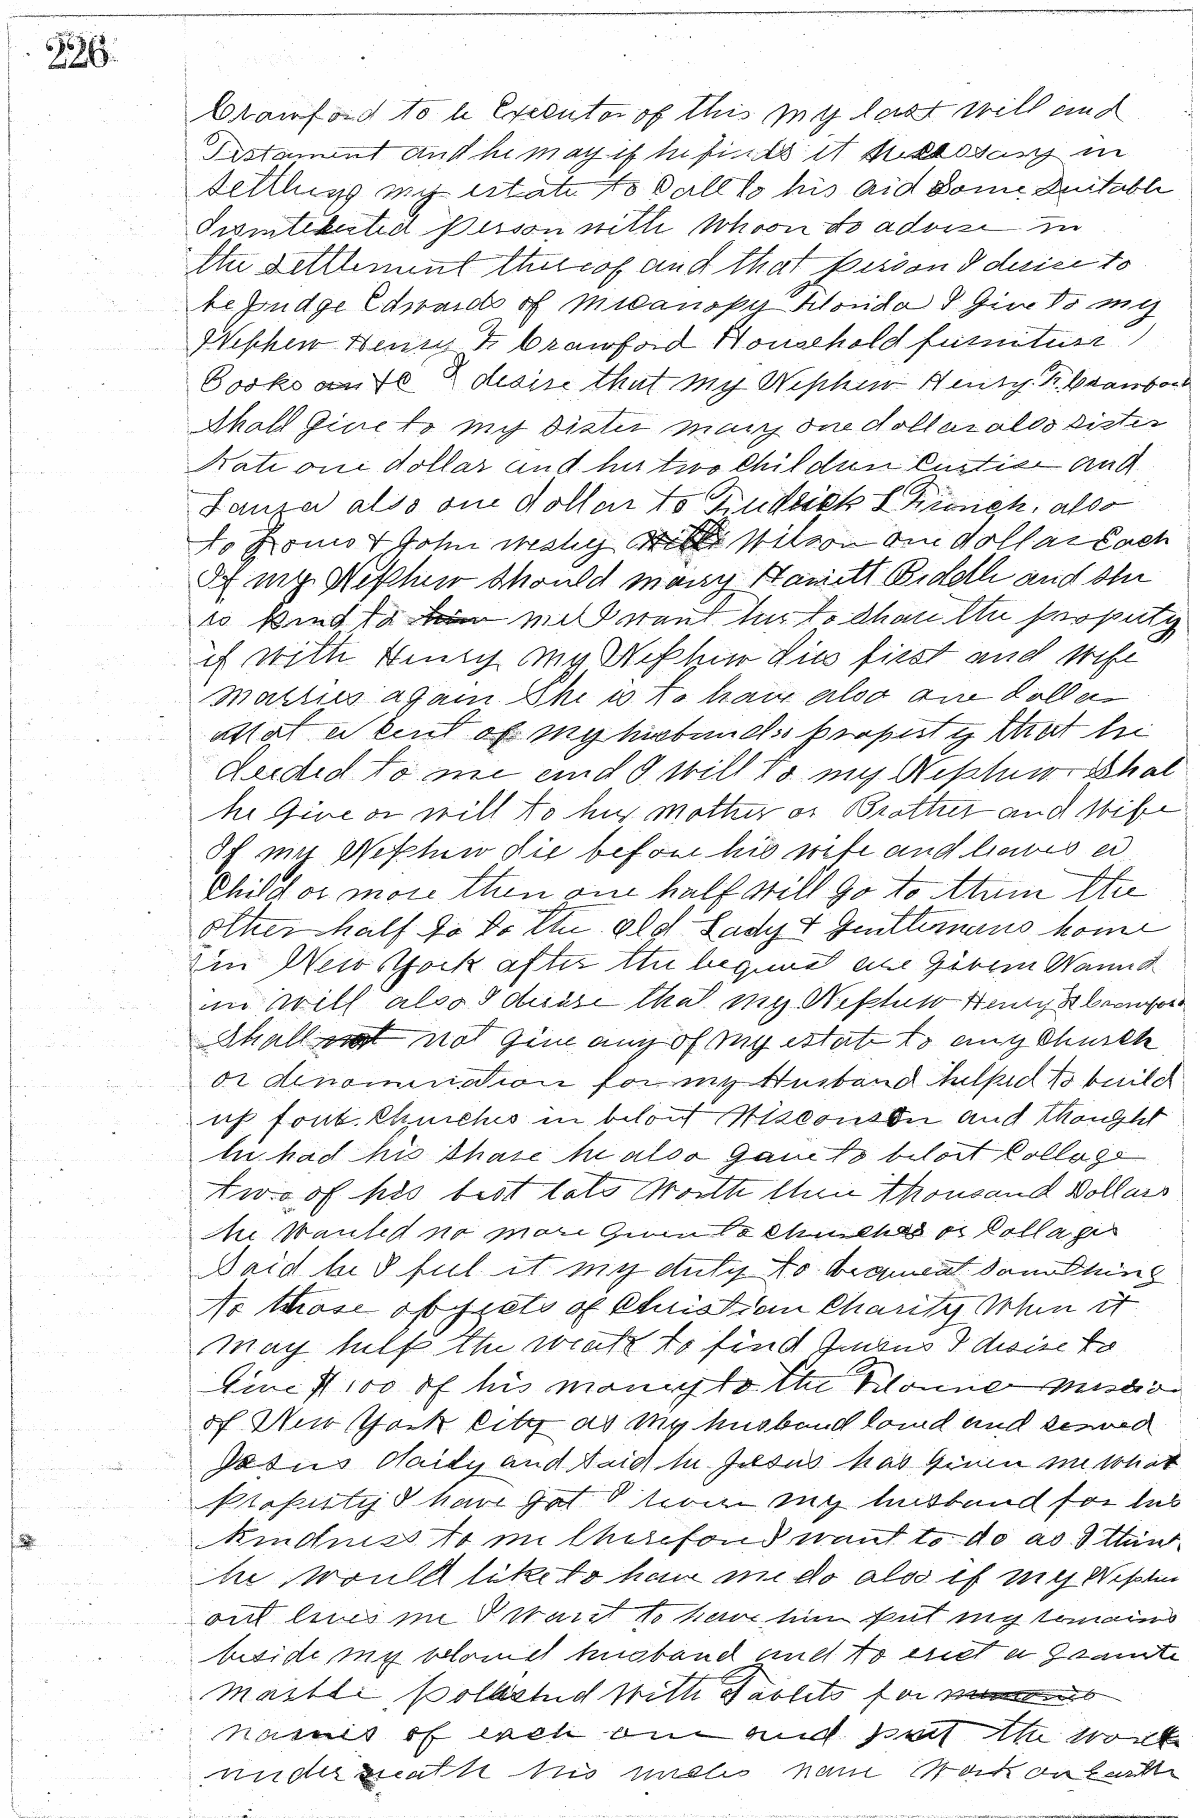 226
Crawford to be Executor of this my last will and
Testament and he may if he finds it necessary in
settling my estate to Call to his aid Some Suitable
disinterested person with whoom to advise in
the settlement thereof and that person I desire to
be Judge Edwards of Micanopy Florida I Give to my
Nephew Henry F. Crawford Household furniture
Books &c I desire that my Nephew Henry F. Crawford
Shall Give to my Sister mary one dollar also sister
Kate one dollar and her two Children Curtise and
Laura also one dollar to Fredrick S French. also
to Louis & John wesley Wilson one dollar Each
If my Nephew Should marry Hariett Biddle and she
is kind to him me I want her to share the property
if with Henry my Nephew dies first and wife
marries again She is to have also one dollar
Not a cent of my husbands property that he
deeded to me and I will to my Nephew Shal
he Give or will to her mother or Brother and wife
If my Nephew die before his wife and leaves a
Child or more then one half will go to them the
other half go to the old Lady & Gentlemans home
in New York after the bequest are given Named
in will also I desire that my Nephew Henry F Crawford
Shall not not give any of my estate to any Church
or denomination for my Husband helped to build
up four Churches in beloit Wisconson and thought
he had his share he also gave to beloit Collage
two of his best lots worth three thousand Dollars
he wanted no more Given to churches or Collages
Said he I feel it my duty to bequeat something
to those objects of Christian Charity When it
may help the weak to find Jesus I desire to
Give $100 of his money to the mission
of New York City as my husband loved and served
Jesus daily and Said he Jesus has given me what
property I have got I love my husband for his
kindness to me therefore I want to do as I think
he would like to have me do also if my Nephew
out lives me I want to have him put my remains
beside my beloved husband and to erect a granite
marble polished with Tablets for
names of each one and put the work
underneath his uncles name Work on Earth